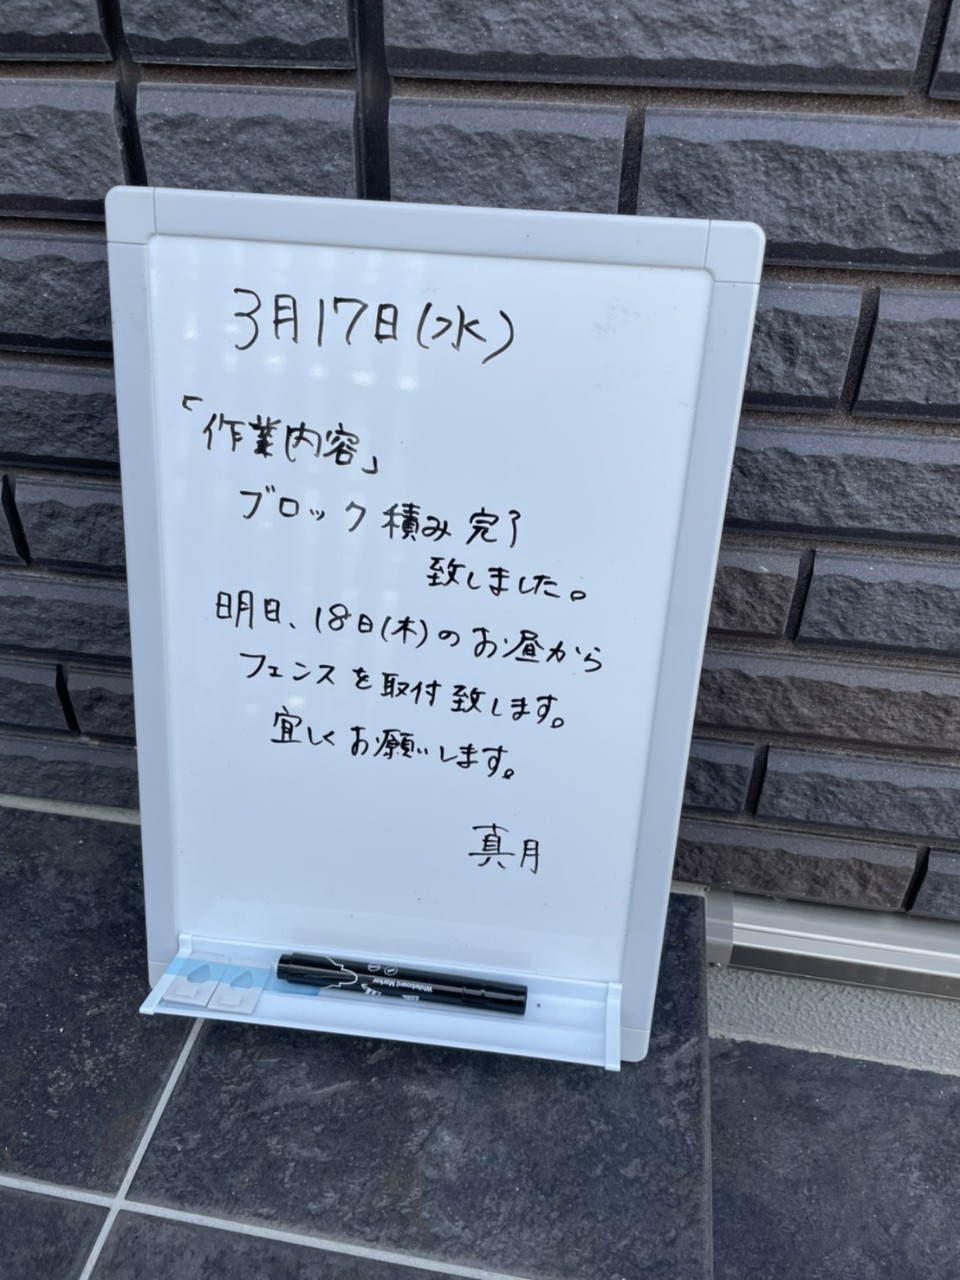 3月17日(水)
「作業内容」
ブロック積み完了
致しました。
明日、18日(木)のお昼から
フェンスを取付致します。
宜しくお願いします。
真月
Whiteboard Marker